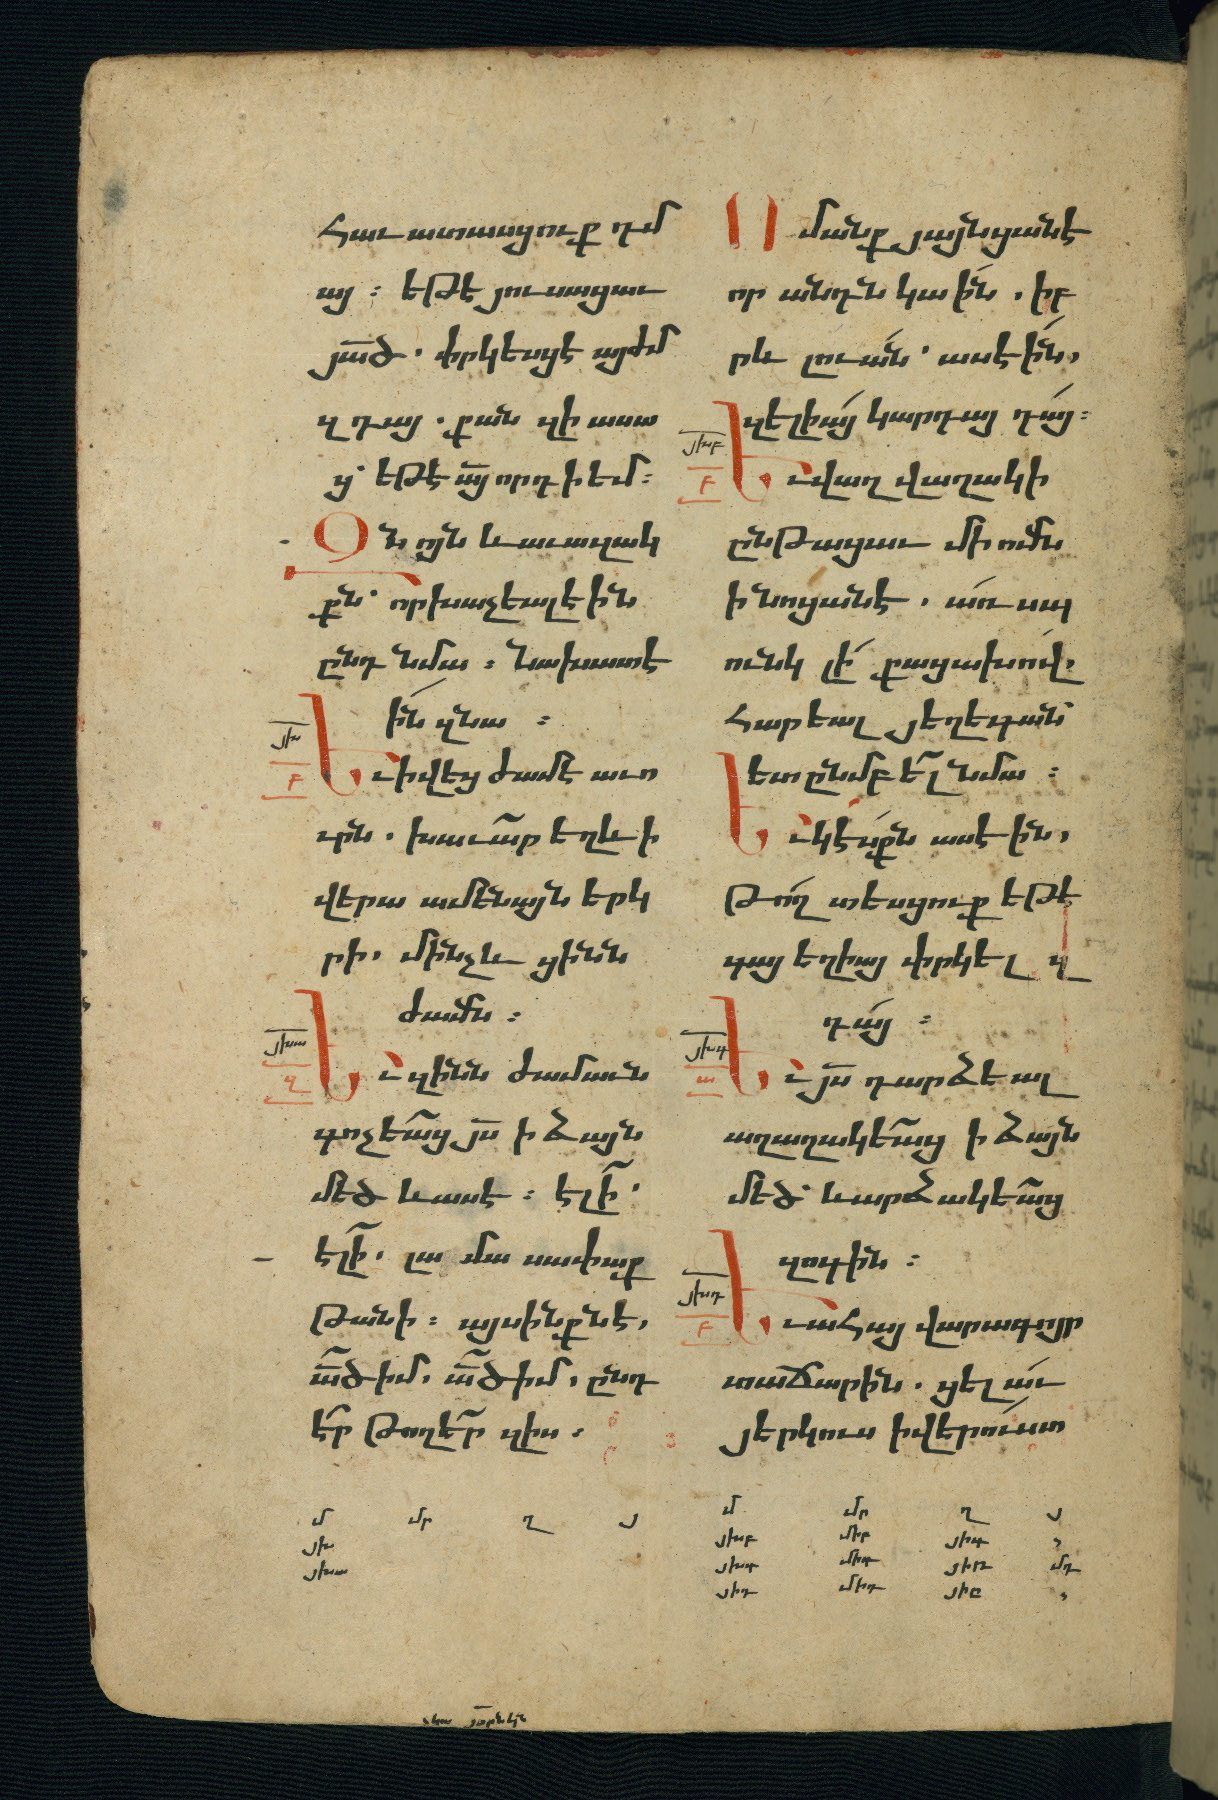 Հաւատասցուք դմ
այ : եթէ յուսացաւ
յա՟ծ . փրկեսցէ այժմ
զդայ . քան զի ասա
ց՝ եթէ ա՟յ որդի եմ :
Զնոյն և աւազակ
քն՝ որ խաչեալ էին
ընդ նմա : նախատէ
ին զնա :
յխ
բ
Եւ ի վեց ժամէ աւո
ւրն . խաւար եղև ի
վերա ամենայն երկ
րի . մինչև ցինն
ժամն :
յխա
զ
Եւ զինն ժամաւն
գոչեաց յ՟ս ի ձայն
մեծ և ասէ : էլի՛
էլի՛ . լա մա սափաք
թանի : այսինքն է,
ա՟ծ իմ, ա՟ծ իմ, ընդ
էր թողեր զիս .
Ոմանք յայնցանէ
որ անդն կաին , իբ
րև լուան՝ ասէին,
զէլիայ կարդայ դայ :
յխբ
բ
Եւ վաղ վաղակի
ընթացաւ մի ոմն
ի նոցանէ . առ սպ
ունկ լի քացախով.
Հարեալ յեղեգան
ետ ընմբել նմա :
Եւ կէսքն ասէին,
թող տեսցուք եթէ
գայ եղիայ փրկել զ
դայ :
յխգ
ա
Եւ յ՟ս դարձեալ
աղաղակեաց ի ձայն
մեծ՝ և արձակեաց
զոգին :
յխդ
բ
Եւ ահայ վարագոյր
տաճարին . ցելաւ
յերկուս ի վերուստ
մ մր ղ յ
յխ
յխա
մ մր ղ յ
յխբ
յխգ